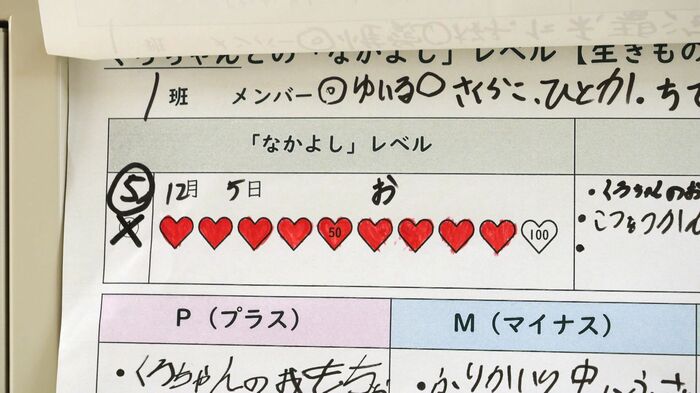 くろちゃんとの「なかよし」レベル【生きもの
1班 メンバー◎ゆいる○さくらこ、ひとか。ちて
「なかよし」レベル
⑤ 12月5日 お
50 100
・くろちゃんのお
・こつをつかん
・
P(プラス) M(マイナス)
・くろちゃんの ・ふりかいり中